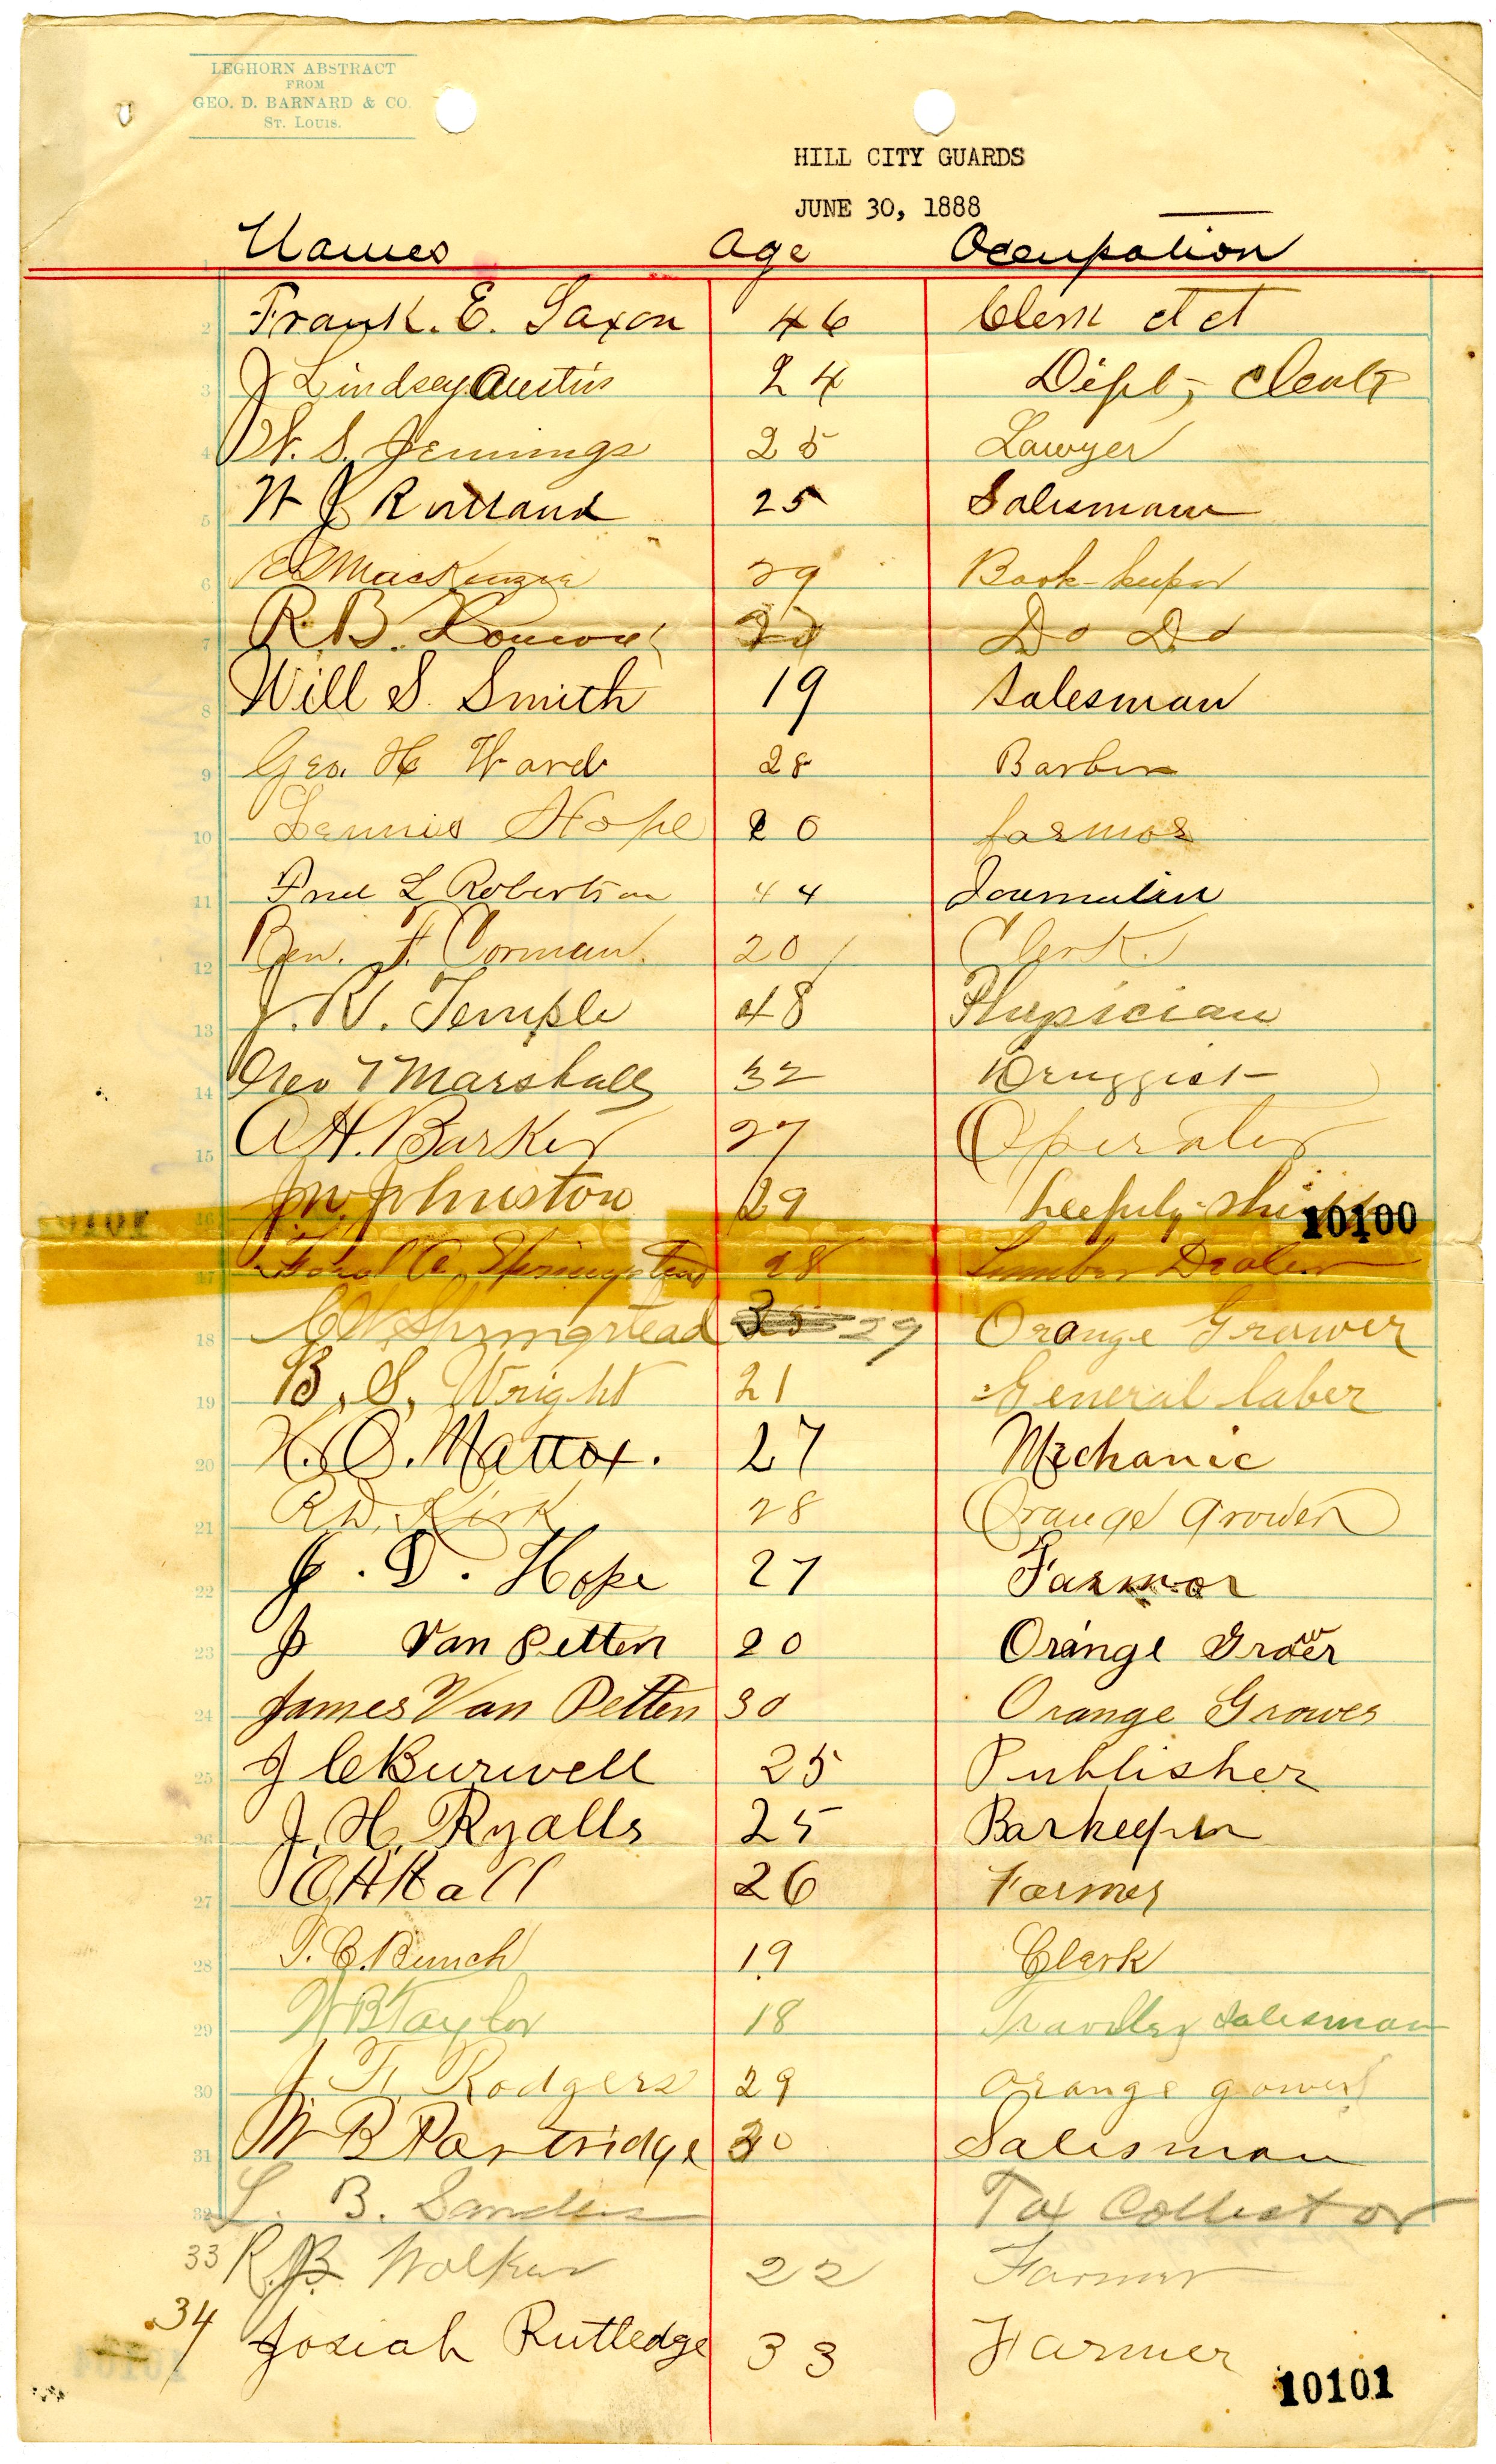 LEGHORN ABSTRACT
FROM
GEO. D. BARNARD & CO.
ST. LOUIS.
HILL CITY GUARDS
JUNE 30, 1888
Names Age Occupation
2 Frank. E. Saxon 46 Clerk ct ct
3 J Lindsey Austin 24 Dept,
4 W. S. Jennings 25 Lawyer
5 W J Rutland 25 Salesman
6 MacKenzie 29 Book-keeper
7 R. B. Do Do
8 Will S. Smith 19 Salesman
9 Geo. H Ward 28 Barber
10 Dennis Hope 20 farmor
11 Fred L Robertson 44 Journalist
12 Ben. F. Corman. 20 Clerk.
13 J. R. Temple 48 Physician
14 Geo T Marshall 32 Druggist
15 A H. Barker 27 Operator
16 J. W. Johnston 29
10100
10101
17 A. Springstead 28 Lumber Dealer
18 Springstead 29 Orange Grower
19 B. S. Wright 21 General laber
20 H. O. Mattox. 27 Mechanic
21 R D. Kirk 28 Orange Grower
22 J. D. Hope 27 Farmor
23 J Van Petten 20 Orange Grower
24 James Van Petten 30 Orange Grower
25 J C Burwell 25 Publisher
26 J. H. Ryalls 25 Barkeeper
27 C H Hall 26 Farmer
28 T. C. Bunch 19 Clerk
29 W B Taylor 18 Salesman
30 J. F. Rodgers 29 orange gower
31 W B Partridge 30 Salesman
32 L. B. Sanders Tax Collector
33 R. B. Walker 22 Farmer
34 Josiah Rutledge 33 Farmer
10101